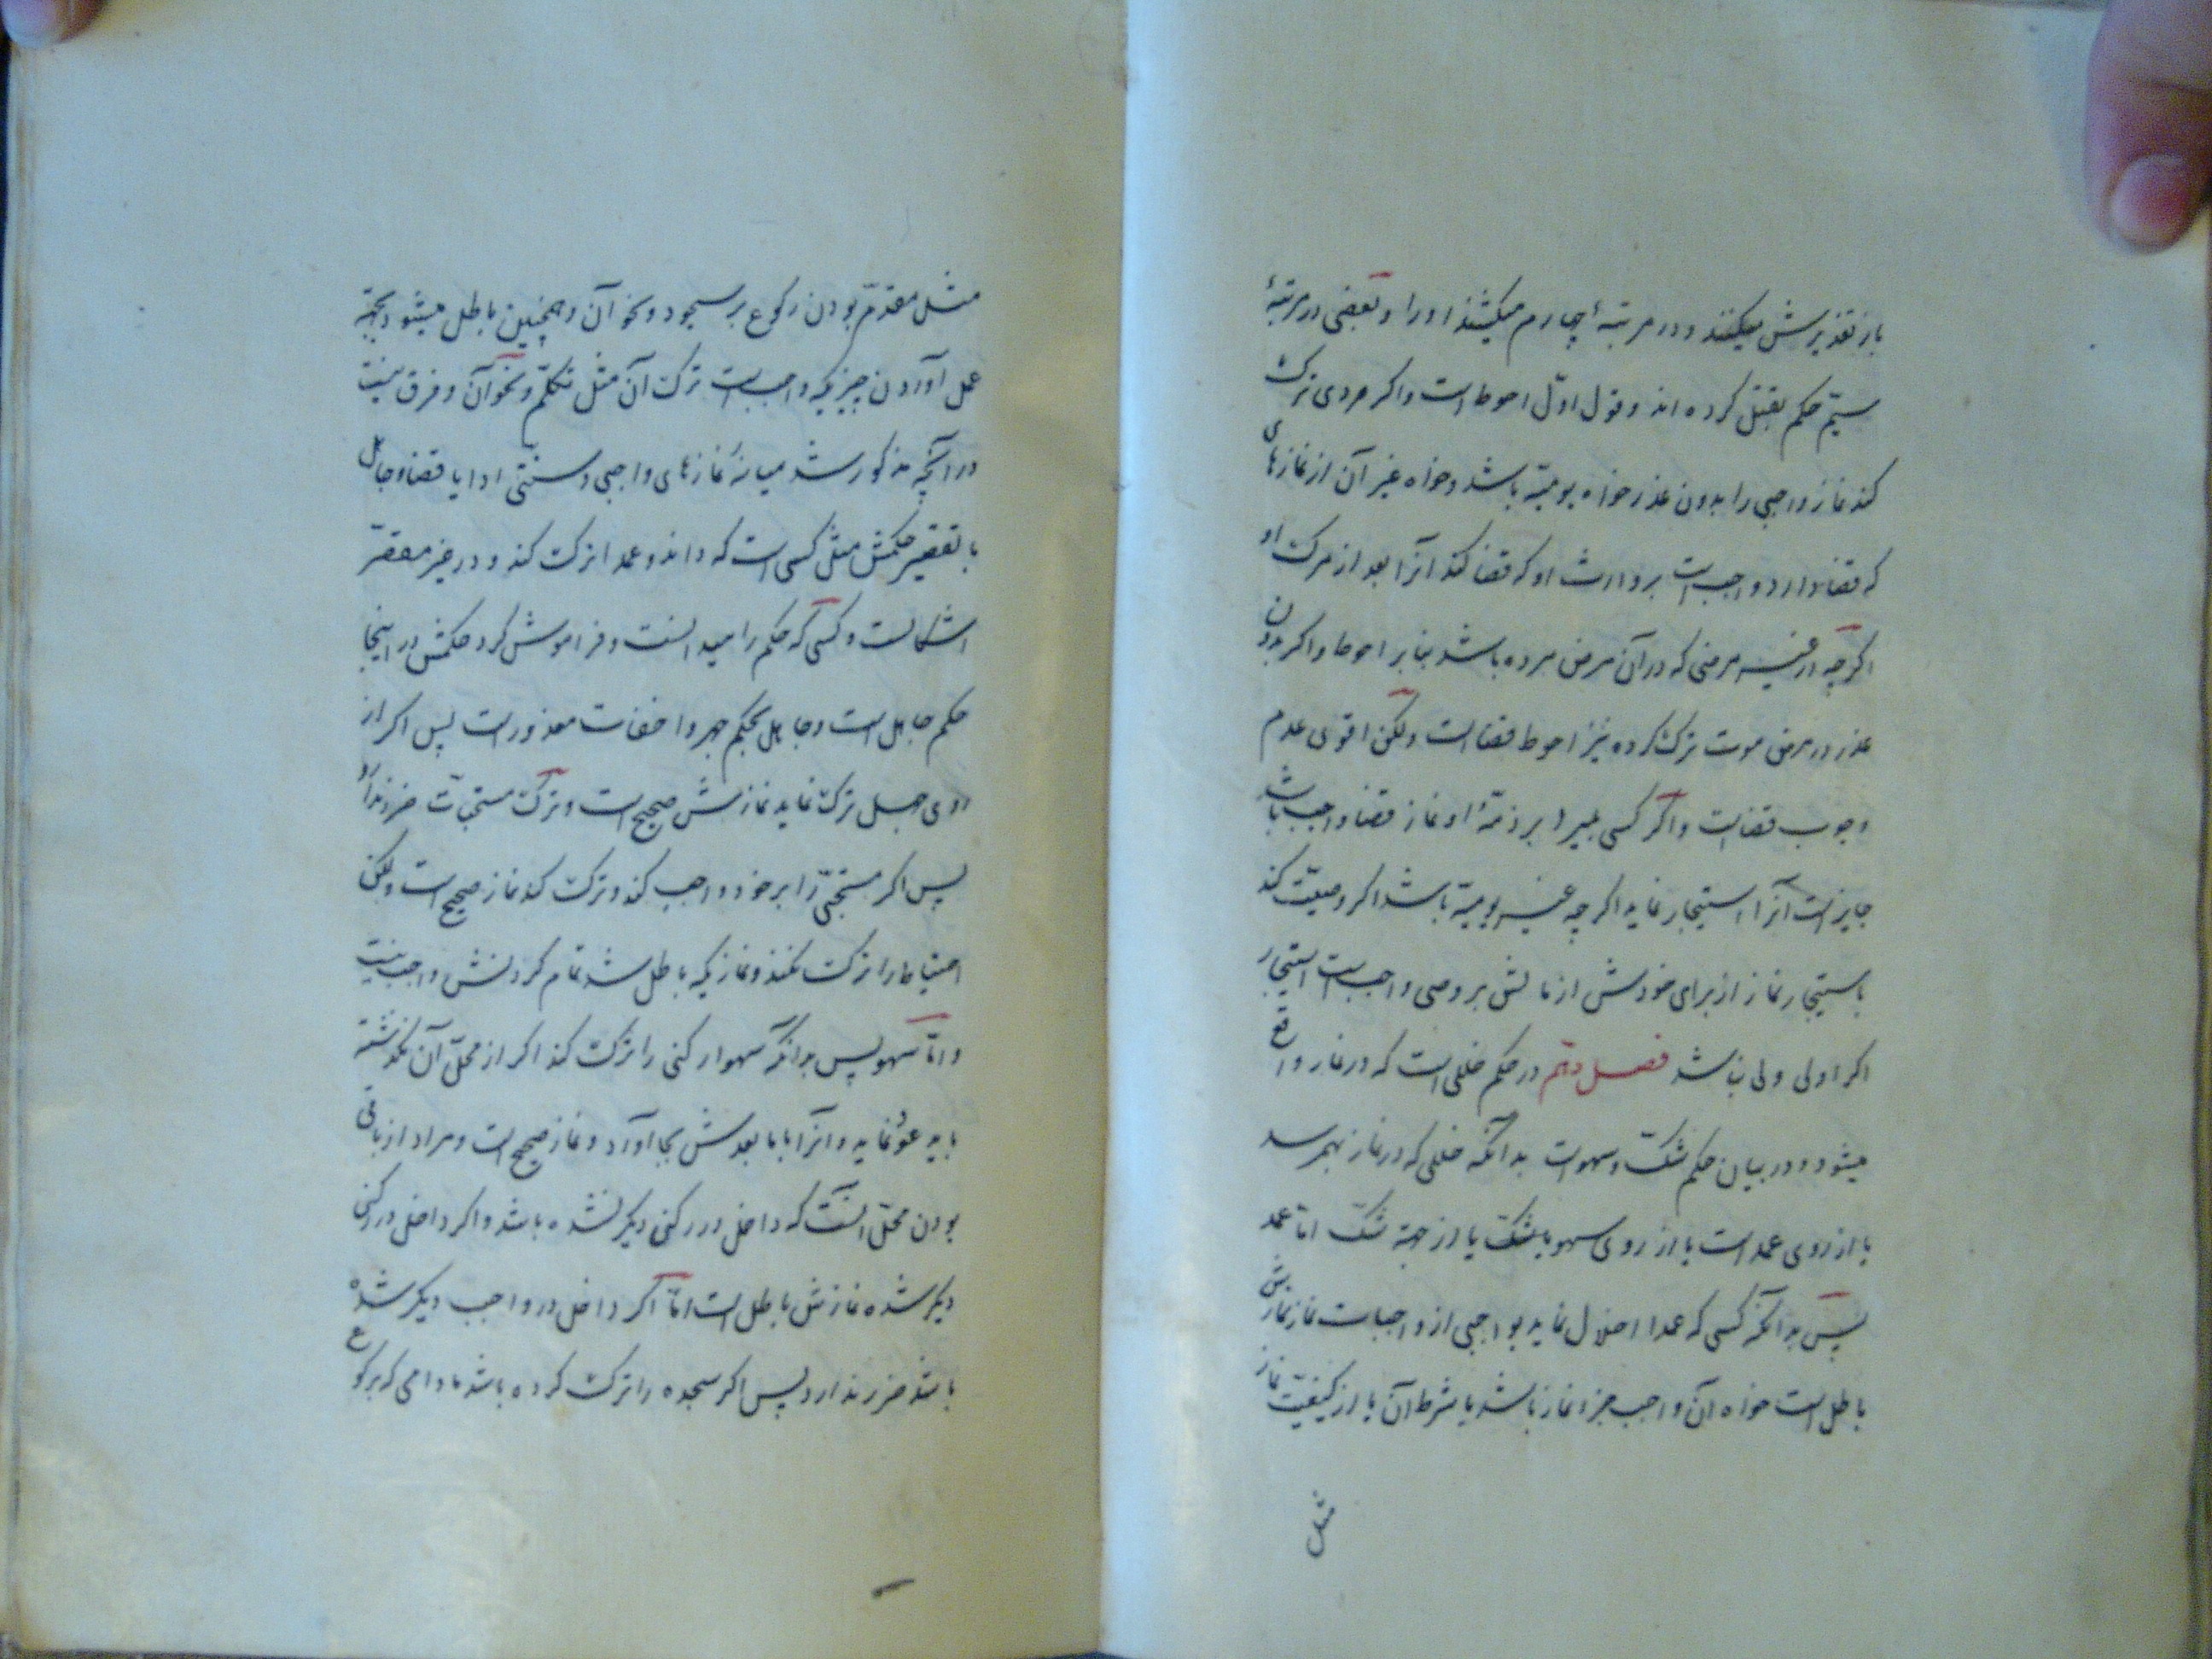 باز تعذیرش میکنند و در مرتبهٔ چهارم میکشند او را و بعضی در مرتبهٔ
سیّم حکم بقتل کرده اند و قول اوّل احوط است و اکر مردی ترک
کند نماز واجبی را بدون عذر خواه یومیّه باشد و خواه غیر آن از نمازهای
که قضا دارد واجب است بر وارث او که قضا کند آنرا بعد از مرک او
اکرچه از غیر مرضی که در آن مرض مرده باشد بنابر احوط و اکر بدون
عذر در مرض موت ترک کرده نیز احوط قضا است ولکن اقوی عدم
وجوب قضاست و اکر کسی بمیرد و بر ذمّهٔ او نماز قضا واجب باشد
جایز است آنرا استیجار نماید اکرچه غیر یومیّه باشد اکر وصیّت کند
باستیجار نماز از برای خودش از مالش بر وصی واجب است استیجار
اکر اولی ولی نباشد فصل دهم در حکم خللی است که در نماز واقع
میشود و در بیان حکم شکّ و سهو است بدانکه خللی که در نماز بهم رسد
یا از روی عمد است یا از روی سهو یا شکّ یا از جهة شکّ امّا عمد
پس بدانکه کسی که عمدا اخلال نماید بواجبی از واجبات نماز نمازش
باطل است خواه آن واجب جزء نماز باشد یا شرط آن یا از کیفیّت نماز
مثل
مثل مقدّم بودن رکوع بر سجود و نحو آن و همچنین باطل میشود بجهة
عمل آوردن چیزیکه واجب است ترک آن مثل تکلّم و نحو آن و فرق نیست
در آنچه مذکور شد میانهٔ نمازهای واجبی و سنّتی ادا یا قضا و جاهل
با تقصیر حکمش مثل کسی است که داند و عمدا ترک کند و در غیر مقصّر
اشکالست و کسی که حکم را میدانست و فراموش کرد حکمش در اینجا
حکم جاهل است و جاهل بحکم جهر و اخفات معذور است پس اکر از
روی جهل ترک نماید نمازش صحیح است و ترک مستحبّات ضرر ندارد
پس اکر مستحبّی را بر خود واجب کند و ترک کند نماز صحیح است ولکن
احتیاط را ترک نکند و نمازیکه باطل شد تمام کردنش واجب نیست
و امّا سهو پس بدانکه سهوا رکنی را ترک کند اکر از محلّ آن نکذشته
باید عود نماید و آنرا با ما بعدش بجا آورد و نماز صحیح است و مراد از باقی
بودن محلّ آنست که داخل در رکنی دیکر نشده باشد و اکر داخل در رکنی
دیکر شده نمازش باطل است امّا اکر داخل در واجب دیکر شده
باشد ضرر ندارد پس اکر سجده را ترک کرده باشد مادامی که برکوع